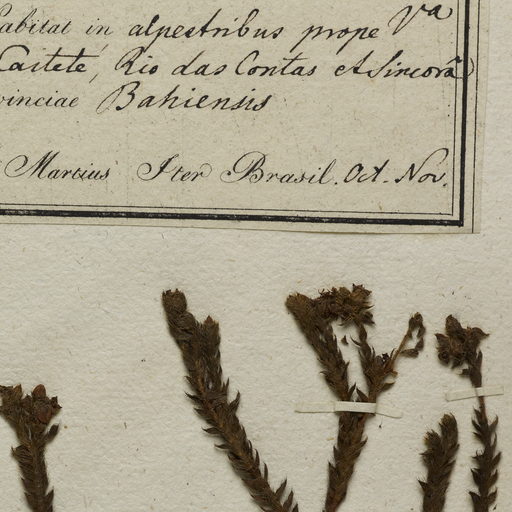 Habitat in alpestribus prope Va
Caiteté, Rio das Contas et Sincorá
vinciae Bahiensis
Martius Iter Brasil. Oct. Nov.